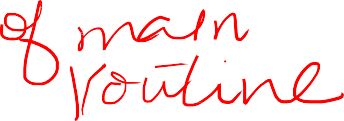 of main
routine